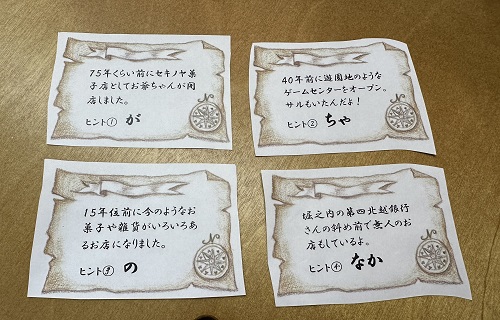 75年くらい前にセキノヤ菓
子店としてお爺ちゃんが開
店しました。
ヒント① が
40年前に遊園地のような
ゲームセンターをオープン。
サルもいたんだよ！
ヒント② ちゃ
15年位前に今のようなお
菓子や雑貨がいろいろあ
るお店になりました。
ヒント③ の
堀之内の第四北越銀行
さんの斜め前で無人のお
店もしているよ。
ヒント④ なか